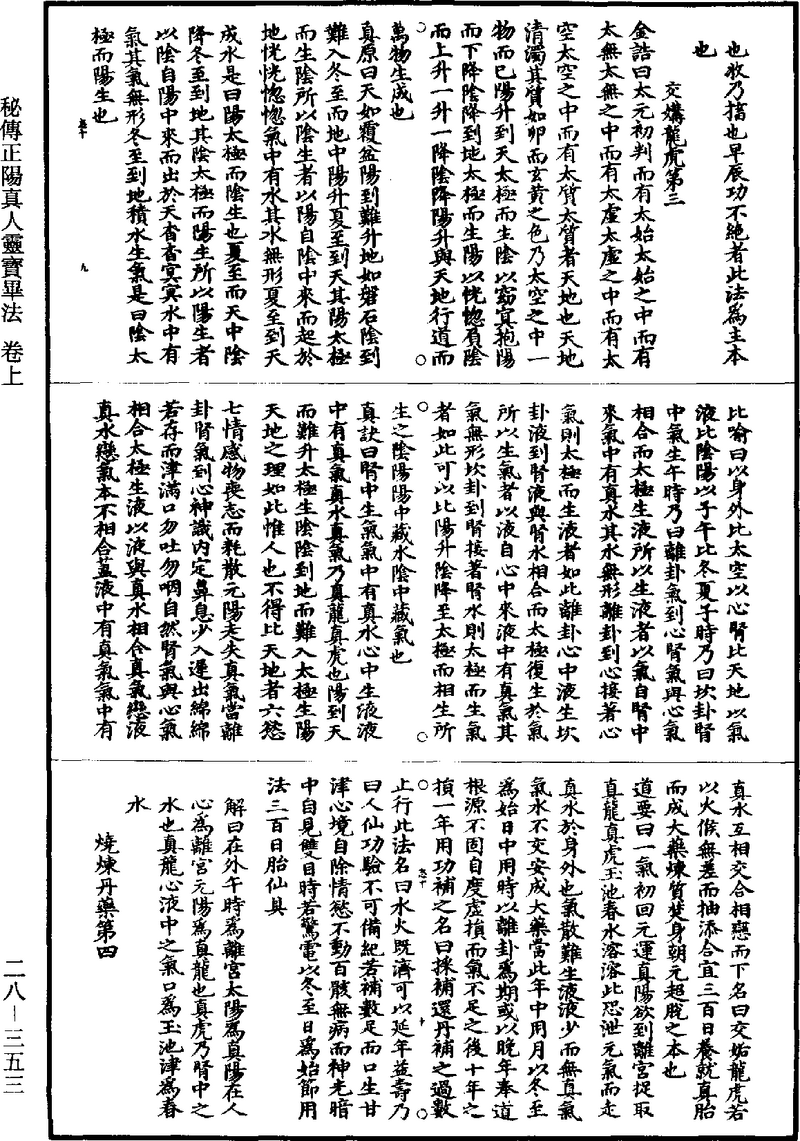 秘傳正陽真人靈寶畢法 卷上
二八—三五三
也故乃擋也早辰功不絕者此法為主本
也
交媾龍虎第三
金誥曰太元初判而有太始太始之中而有
太無太無之中而有太虛太虛之中而有太
空太空之中而有太質太質者天地也天地
清濁其質如卵而玄黃之色乃太空之中一
物而已陽升到天太極而生陰以窈冥抱陽
而下降陰降到地太極而生陽以恍惚負陰
而上升一升一降陰降陽升與天地行道而
萬物生成也
真原曰天如覆盆陽到難升地如磐石陰到
難入冬至而地中陽升夏至到天其陽太極
而生陰所以陰生者以陽自陰中來而起於
地恍恍惚惚氣中有水其水無形夏至到天
成水是曰陽太極而陰生也夏至而天中陰
降冬至到地其陰太極而陽生所以陽生者
以陰自陽中來而出於天杳杳冥冥水中有
氣其氣無形冬至到地積水生氣是曰陰太
極而陽生也
比喻曰以身外比太空以心腎比天地以氣
液比陰陽以子午比冬夏子時乃曰坎卦腎
中氣生午時乃曰離卦氣到心腎氣與心氣
相合而太極生液所以生液者以氣自腎中
來氣中有真水其水無形離卦到心接著心
氣則太極而生液者如此離卦心中液生坎
卦液到腎液與腎水相合而太極復生於氣
所以生氣者以液自心中來液中有真氣其
氣無形坎卦到腎接著腎水則太極而生氣
者如此可以比陽升陰降至太極而相生所
生之陰陽陽中藏水陰中藏氣也
真訣曰腎中生氣氣中有真水心中生液液
中有真氣真水真氣乃真龍真虎也陽到天
而難升太極生陰陰到地而難入太極生陽
天地之理如此惟人也不得比天地者六慾
七情感物喪志而耗散元陽走失真氣當離
卦腎氣到心神識內定鼻息少入遲出綿綿
若存而津滿口勿吐勿咽自然腎氣與心氣
相合太極生液以液與真水相合真氣戀液
真水戀氣本不相合蓋液中有真氣氣中有
真水互相交合相戀而下名曰交媾龍虎若
以火候無差而抽添合宜三百日養就真胎
而成大藥煉質焚身朝元超脫之本也
道要曰一氣初回元運真陽欲到離宮捉取
真龍真虎玉池春水溶溶此恐泄元氣而走
真水於身外也氣散難生液液少而無真氣
氣水不交安成大藥當此年中用月以冬至
為始日中用時以離卦為期或以晚年奉道
根源不固自度虛損而氣不足之後十年之
損一年用功補之名曰採補還丹補之過數
止行此法名曰水火既濟可以延年益壽乃
曰人仙功驗不可備紀若補數足而口生甘
津心境自除情慾不動百骸無病而神光暗
中自見雙目時若驚電以冬至日為始節用
法三百日胎仙具
解曰在外午時為離宮太陽為真陽在人
心為離宮元陽為真龍也真虎乃腎中之
水也真龍心液中之氣口為玉池津為春
水
燒煉丹藥第四